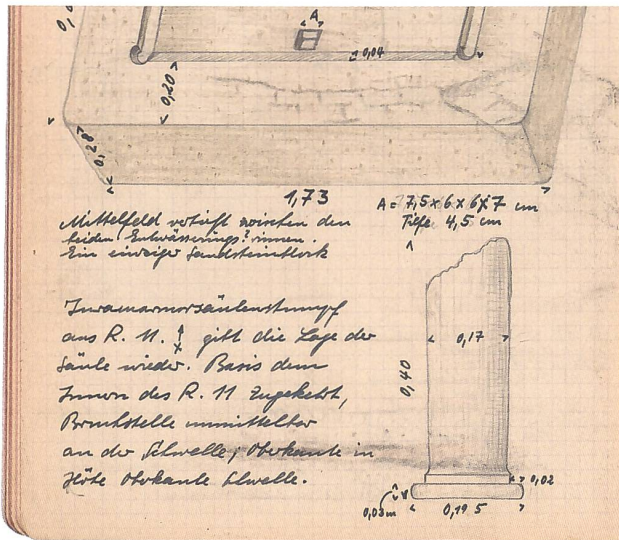 0,0
A
0,04
0,20
0,28
1,73
A = 7,5 x 6 x 6 x 7 cm
Tiefe 4,5 cm
Mittelfeld vertieft zwischen den
beiden Entwässerungs?rinnen.
Ein einziger Sandsteinblock
Juramarmorsäulenstumpf
aus R. 11. gibt die Lage der
Säule wieder. Basis dem
Innern des R. 11 zugekehrt,
Bruchstelle unmittelbar
an der Schwelle, Oberkante in
Höhe Oberkante Schwelle.
0,17
0,40
0,02
0,03m
0,19 5